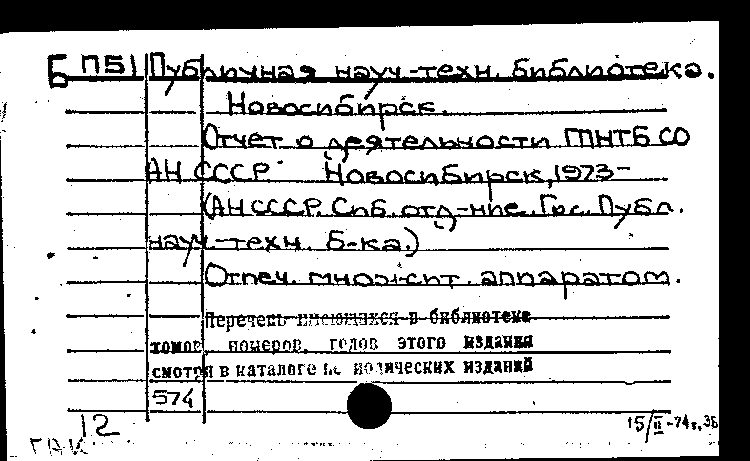 Б П51 Публичная науч-техн. библиотека.
Новосибирск.
Отчет о деятельности ГПНТБ СО
АН СССР. Новосибирск, 1973-
(АН СССР. Сиб. отд-ние. Гос. Публ.
науч-техн. б-ка.)
Отпеч. множит. аппаратом.
Перечень имеющихся в библиотеке
томов, номеров, годов этого издания
смотри в каталоге периодических изданий
574
12
15/II-74г.
ГАК